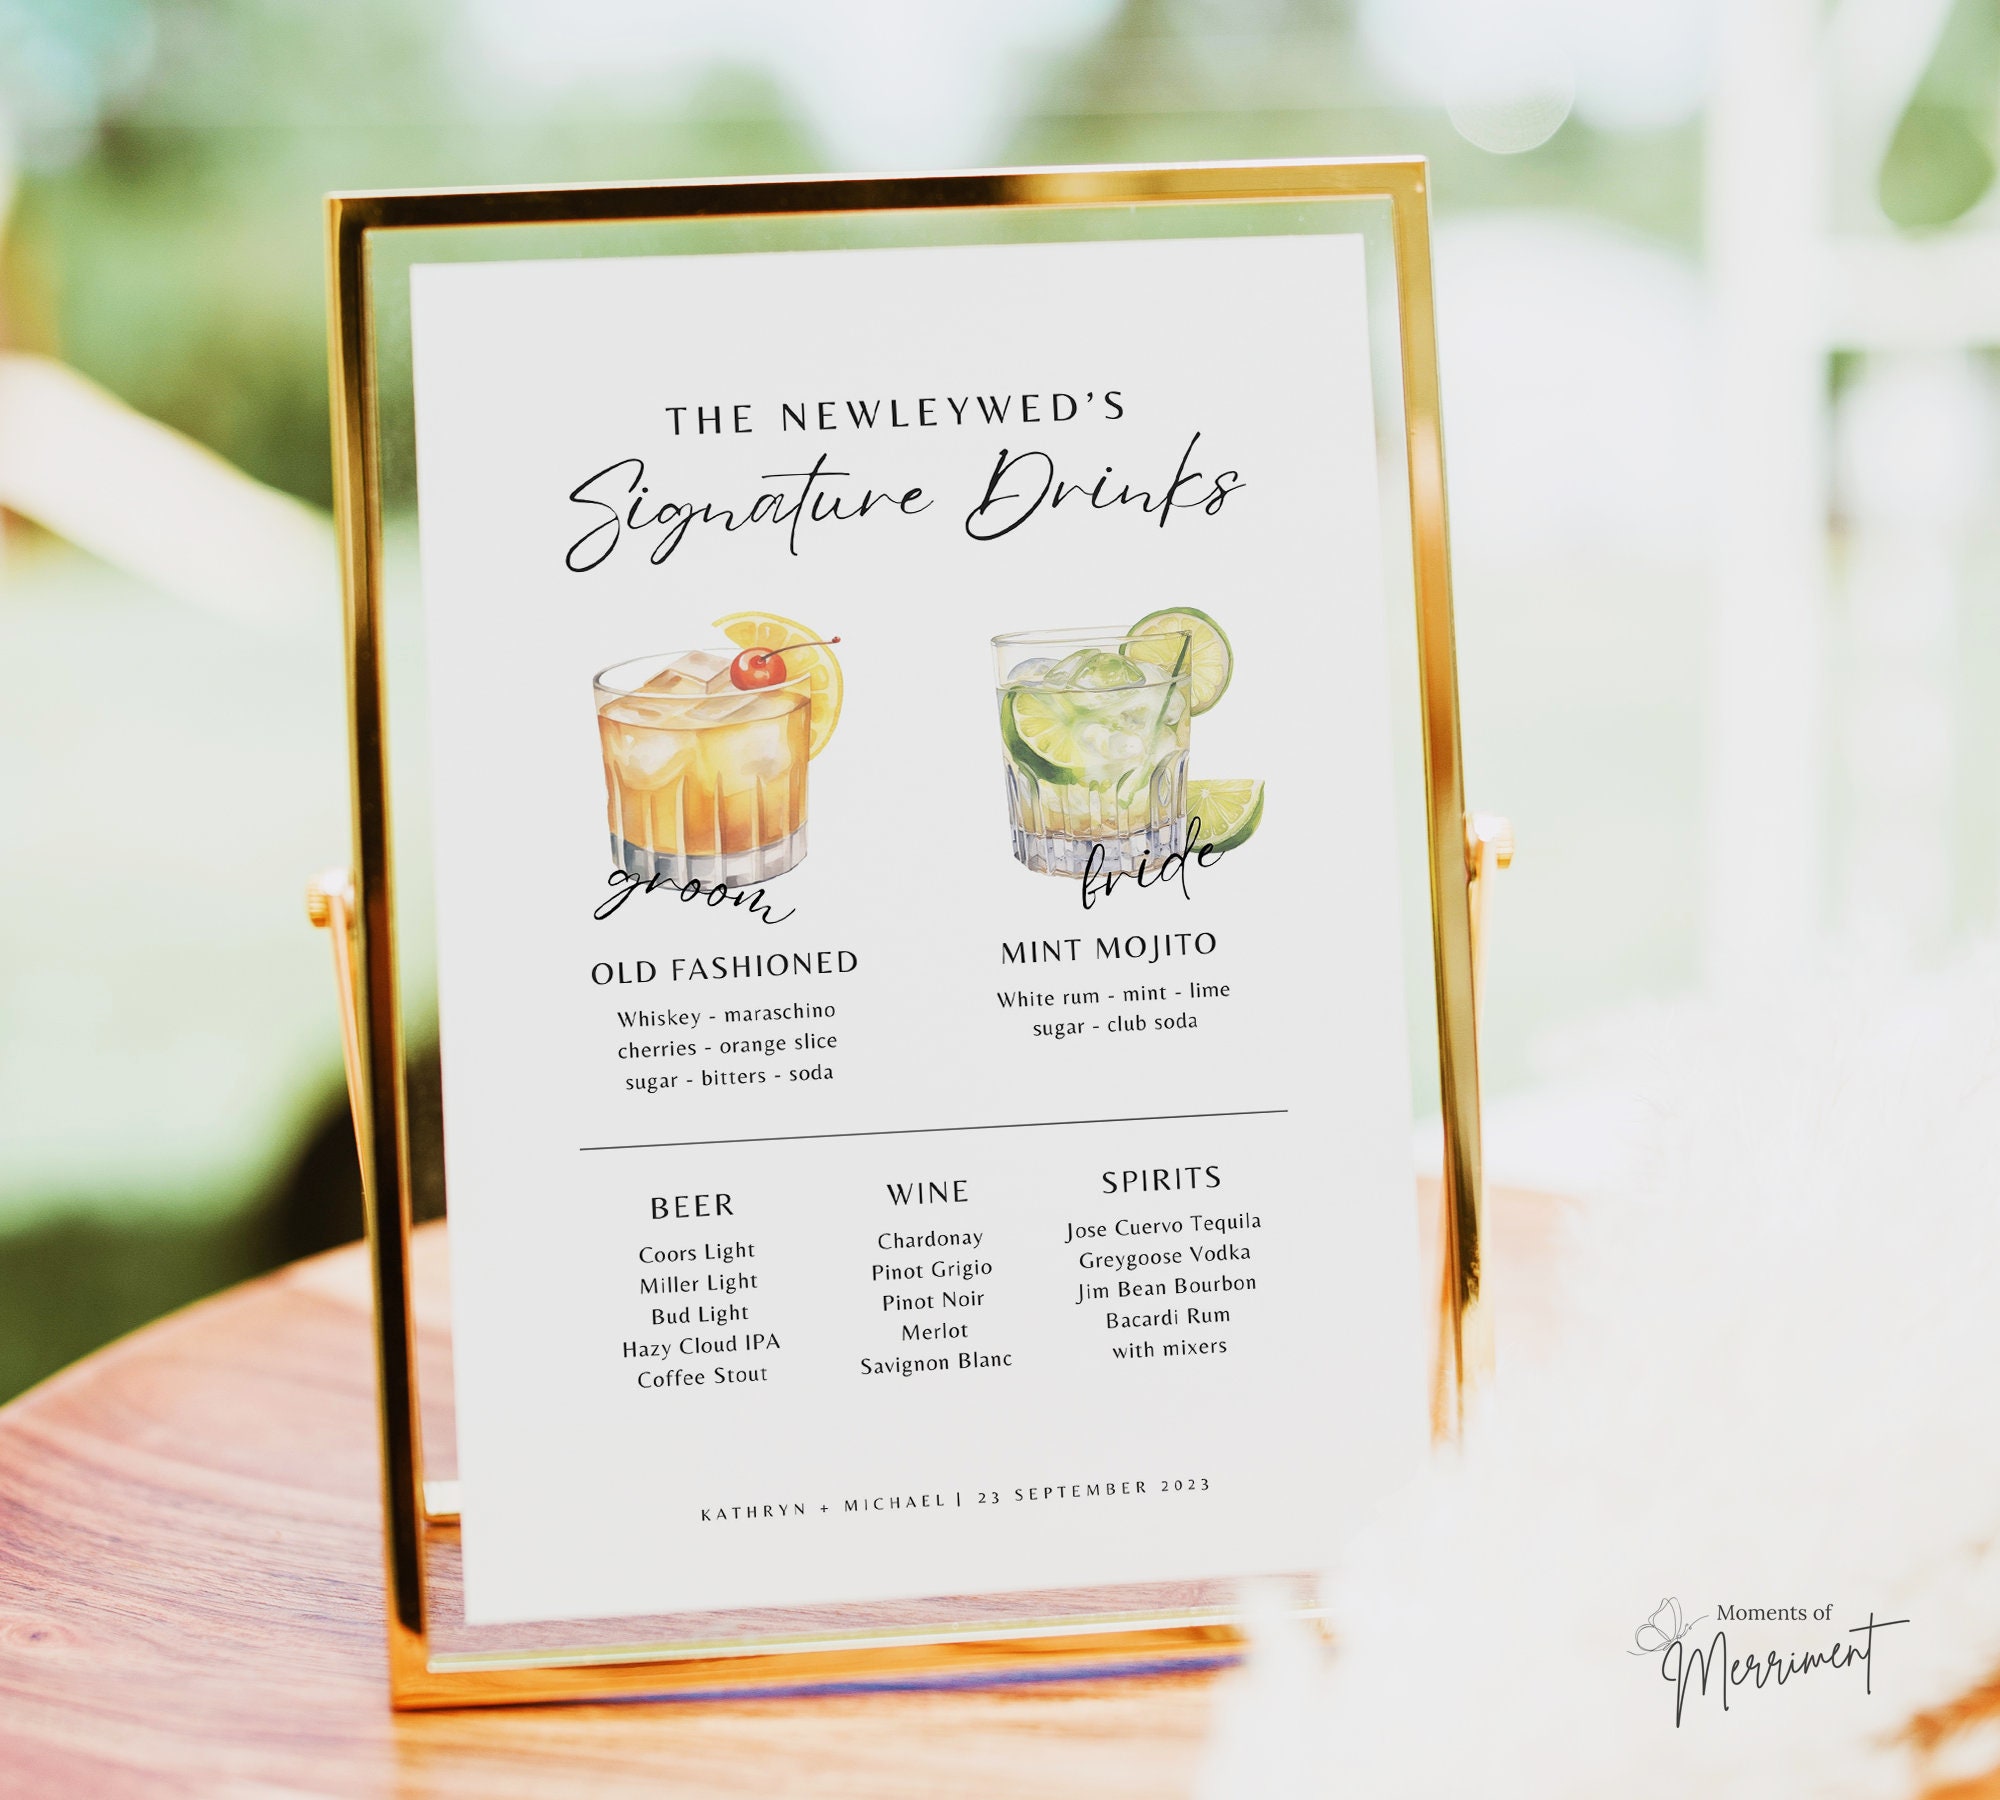 THE NEWLEYWED'S
Signature Drinks
groom
OLD FASHIONED
Whiskey - maraschino
cherries - orange slice
sugar - bitters - soda
bride
MINT MOJITO
White rum - mint - lime
sugar - club soda
BEER
Coors Light
Miller Light
Bud Light
Hazy Cloud IPA
Coffee Stout
WINE
Chardonay
Pinot Grigio
Pinot Noir
Merlot
Savignon Blanc
SPIRITS
Jose Cuervo Tequila
Greygoose Vodka
Jim Bean Bourbon
Bacardi Rum
with mixers
KATHRYN + MICHAEL | 23 SEPTEMBER 2023
Moments of
Merriment